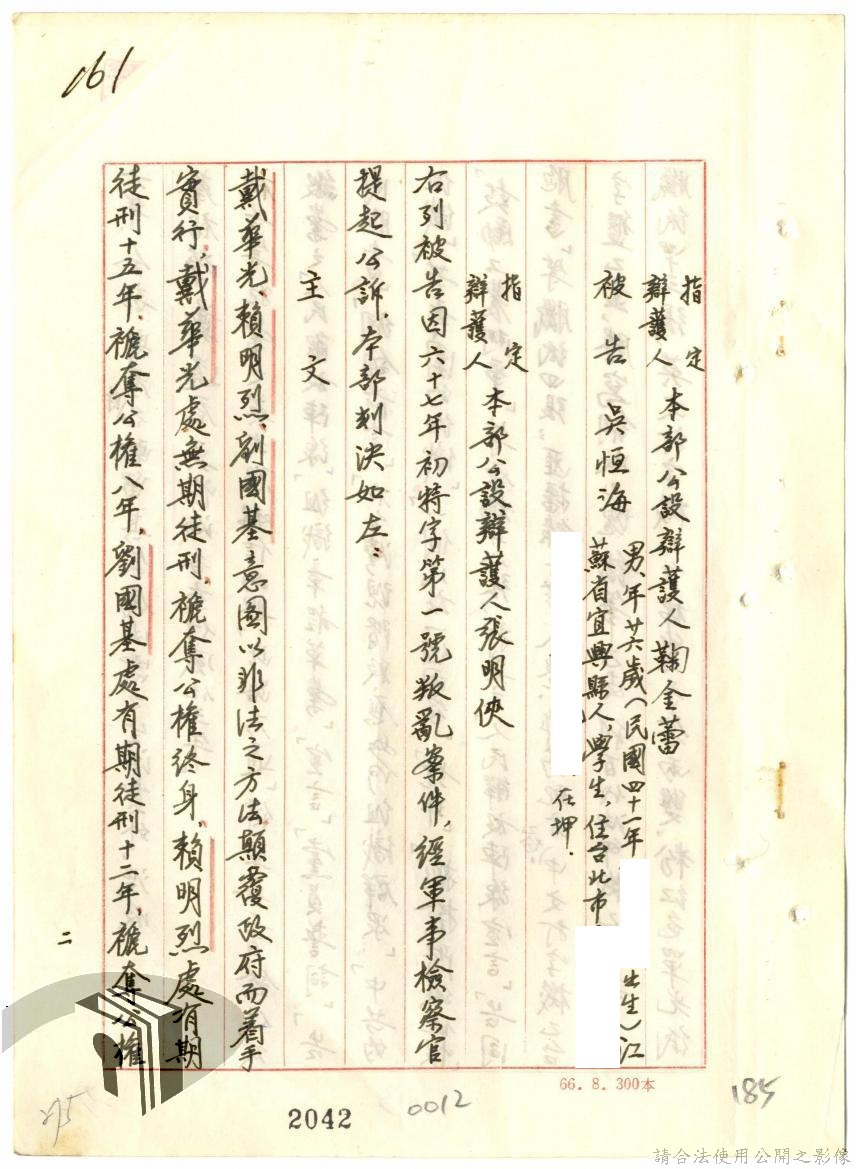 161
指定
辯護人 本部公設辯護人鞠金蕾
被告 吳恒海 男、年廿六歲(民國四十一年
出生)江
蘇省宜興縣人,學生,住台北市
在押.
指定
辯護人 本部公設辯護人張明俠
右列被告因六十七年初特字第一號叛亂案件,經軍事檢察官
提起公訴,本部判決如左:
主文
戴華光、賴明烈、劉國基意圖以非法之方法顛覆政府而着手
實行,戴華光處無期徒刑,褫奪公權終身,賴明烈處有期
徒刑十五年,褫奪公權八年,劉國基處有期徒刑十二年,褫奪公權
二
66. 8. 300本
2042
0012
185
請合法使用公開之影像